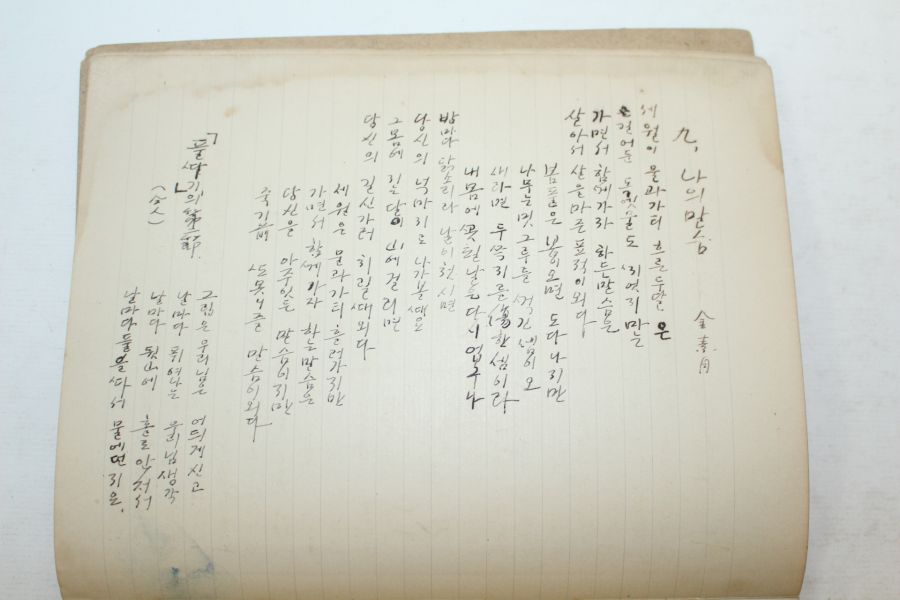 九, 나의 말슴 金素月
세월이 물과가티 흐른두달은
걸어둔 독엣술도 찌엿지마는
가면서 함께가쟈 하든말슴은
살아서 살을마즌 표적이외다
봄풀은 봄이오면 도다나지만
나무는밋그루를 꺽근셈이오
새라면 두쭉지를 傷한셈이라
내몸에 꼿필날은 다시업구나
밤마다 닭소리라 날이첫시면
당신의 넉마지로 나가볼때요
그믐에 지는달이 山에걸리면
당신의 길신가리 차릴때외다
세월은 물과가티 흘러가지만
가면서 함께가쟈 하는말슴은
당신을 아주잇든 말슴이지만
죽기前 또못니즐 말슴이외다
「풀따기」의 第一節
(金人)
그립은 우리님은 어듸게신고
날마다 퓌여나는 우리님생각
날마다 뒷山에 홀로안저서
날마다 풀을따서 물에던지은,